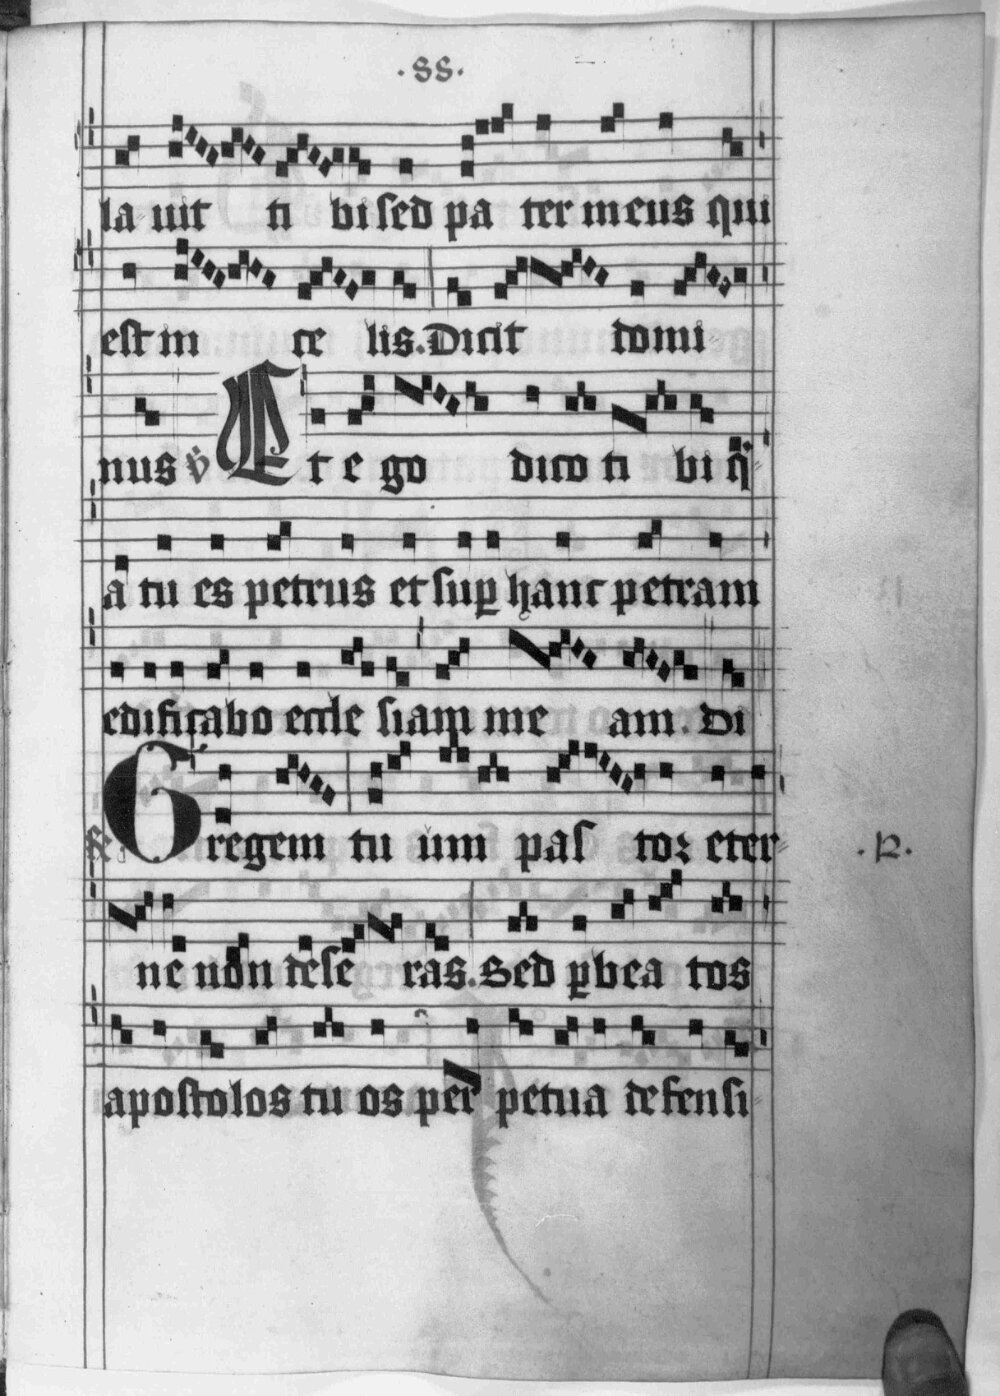 .88.
la uit ti bi sed pa ter meus qui
est in ce lis. Dicit domi
nus v̄ Et e go dico ti bi q̄
a tu es petrus et sup̱ hanc petram
edificabo eccle siam me am. Di
℟ Gregem tu um pas tor eter .R.
ne non dese ras. Sed ꝑ bea tos
apostolos tu os per petua defensi